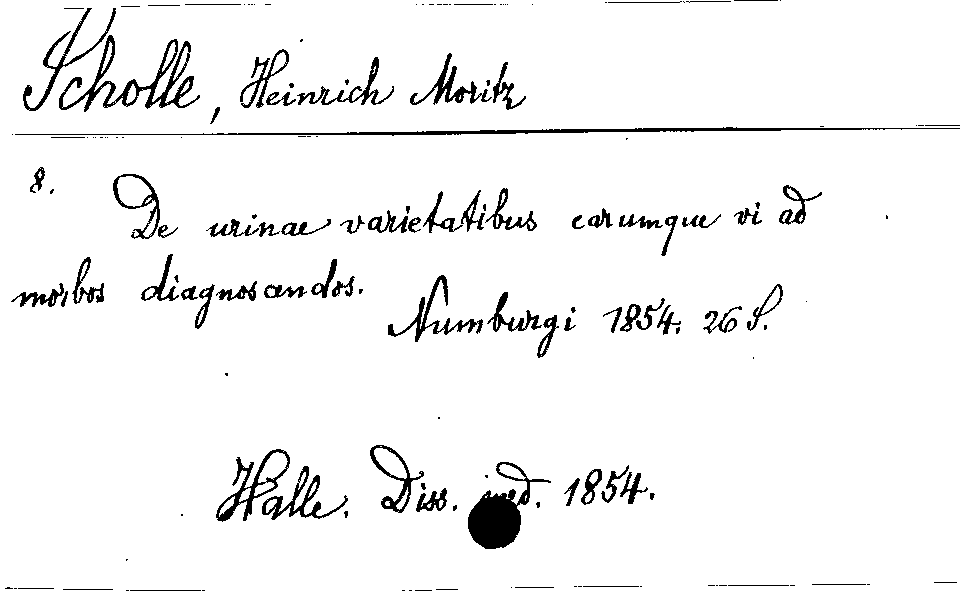 Scholle, Heinrich Moritz
8.
De urinae varietatibus earumque vi ad
morbos diagnoscendos.
Numburgi 1854. 26 S.
Halle. Diss. med. 1854.